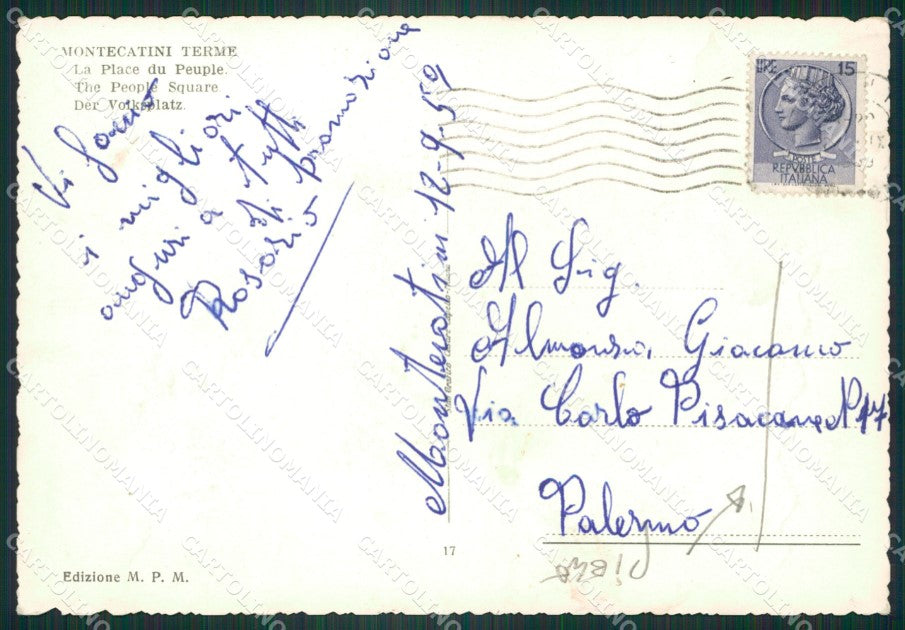 MONTECATINI TERME
La Place du Peuple.
The People Square
Der Volksplatz.
Vi
i migliori
auguri a tutti
di promozione
Rosario
Montecatini 12-9-59
LIRE 15
POSTE
REPVBBLICA
ITALIANA
Al Sig.
Giacomo
Via Carlo Pisacane N 47
Palermo
17
Edizione M. P. M.
CARTOLINOMANIA